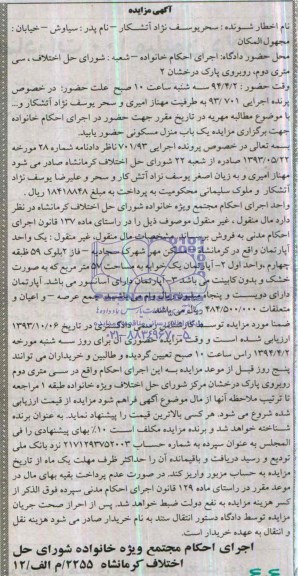 آگهی مزایده
نام اخطار شونده : سحریوسف نژاد آتشکار – نام پدر : سیاوش – خیابان :
مجهول المکان
محل حضور دادگاه: اجرای احکام خانواده – شعبه : شورای حل اختلاف ، سی
متری دوم، روبروی پارک درخشان ۲
وقت حضور: ۹۴/۴/۲ سه شنبه ساعت ۱۰ صبح علت حضور: در خصوص
پرونده اجرایی ۹۳/۷۰۱ به طرفیت مهناز امیری و سحر یوسف نژاد آتشکار و..
با موضوع مطالبه مهریه در تاریخ مقرر جهت حضور در اجرای احکام خانواده
جهت برگزاری مزایده یک باب منزل مسکونی حضور یابید.
بسمه تعالی در خصوص پرونده اجرایی ۷۰۱/۹۳ ناظر دادنامه شماره ۲۸ مورخه
۱۳۹۳/۰۵/۲۲ صادره از شعبه ۲۲ شورای حل اختلاف کرمانشاه صادر می شود
مهناز امیری و به زیان اصغر یوسف نژاد آتش کار و سحر و علیرضا یوسف نژاد
آتشکار و ملوک سلیمانی محکومیت به پرداخت به مبلغ ۱۸۴۱۸۸۴۸ ریال .
واحد اجرای احکام مجتمع ویژه خانواده شورای حل اختلاف کرمانشاه در نظر
دارد مال منقول ، غیر منقول موصوف ذیل را در راستای ماده ۱۳۷ قانون اجرای
احکام مدنی به فروش برساند. مشخصات مال منقول، غیر منقول : یک واحد
آپارتمان واقع در کرمانشاه مسکن مهر شهرک سجادیه – فاز ۲بلوک ۵۹ طبقه
چهارم ،واحد اول ۲– آپارتمان یک خوابه به مساحت ۵۷ متر مربع که به صورت
خشک و بدون کابینت می باشد ۳– آپارتمان دارای آسانسور می باشد. آپارتمان
دارای دویست و پنجاه میلیون ریال وام می باشد
متعلقات ۲۸۴/۵۰۰/۰۰۰ ریال می باشد.
ضمنا مورد مزایده توسط کارشناس رسمی دادگستری در تاریخ ۱۳۹۳/۱۰/۰۶
ارزیابی شده است و وقت مزایده حضوری آن برای روز سه شنبه مورخه
۱۳۹۴/۴/۲ راس ساعت ۱۰ صبح تعیین گردیده و طالبین و خریداران می توانند
پنج روز قبل از موعد مزایده به این اجرای احکام واقع در سی متری دوم
روبروی پارک درخشان مرکز شورای حل اختلاف ویژه خانواده طبقه ۱ مراجعه
تا ترتیب ملاحظه آنها از مال موضوع آگهی فراهم شود مزایده از قیمت ارزیابی
شده شروع می شود. هر کس بالاترین قیمت را پیشنهاد نماید. به عنوان برنده
شناخته خواهد شد و برنده مزایده مکلف است ۱۰٪ بهای پیشنهادی را فی
المجلس به عنوان سپرده به شماره حساب ۲۱۷۱۲۹۳۷۵۲۰۰۳ نزد بانک ملی
تودیع و رسید دریافت و باقیمانده آن را حداکثر ظرف مهلت یک ماه از تاریخ
مزایده به حساب مزبور واریز کند. در صورت عدم پرداخت بقیه بهای مال در
موعد مقرر در راستای ماده ۱۲۹ قانون اجرای احکام مدنی سپرده فوق الذکر از
کسر هزینه مزایده به نفع دولت ضبط خواهد شد. پس از احراز صحت جریان
مزایده توسط دادگاه دستور انتقال سند به نام خریدار صادر می شود هزینه نقل
و انتقال به عهده خریدار است.
اجرای احکام مجتمع ویژه خانواده شورای حل
اختلاف کرمانشاه ۲۲۵۵/م الف/۱۲